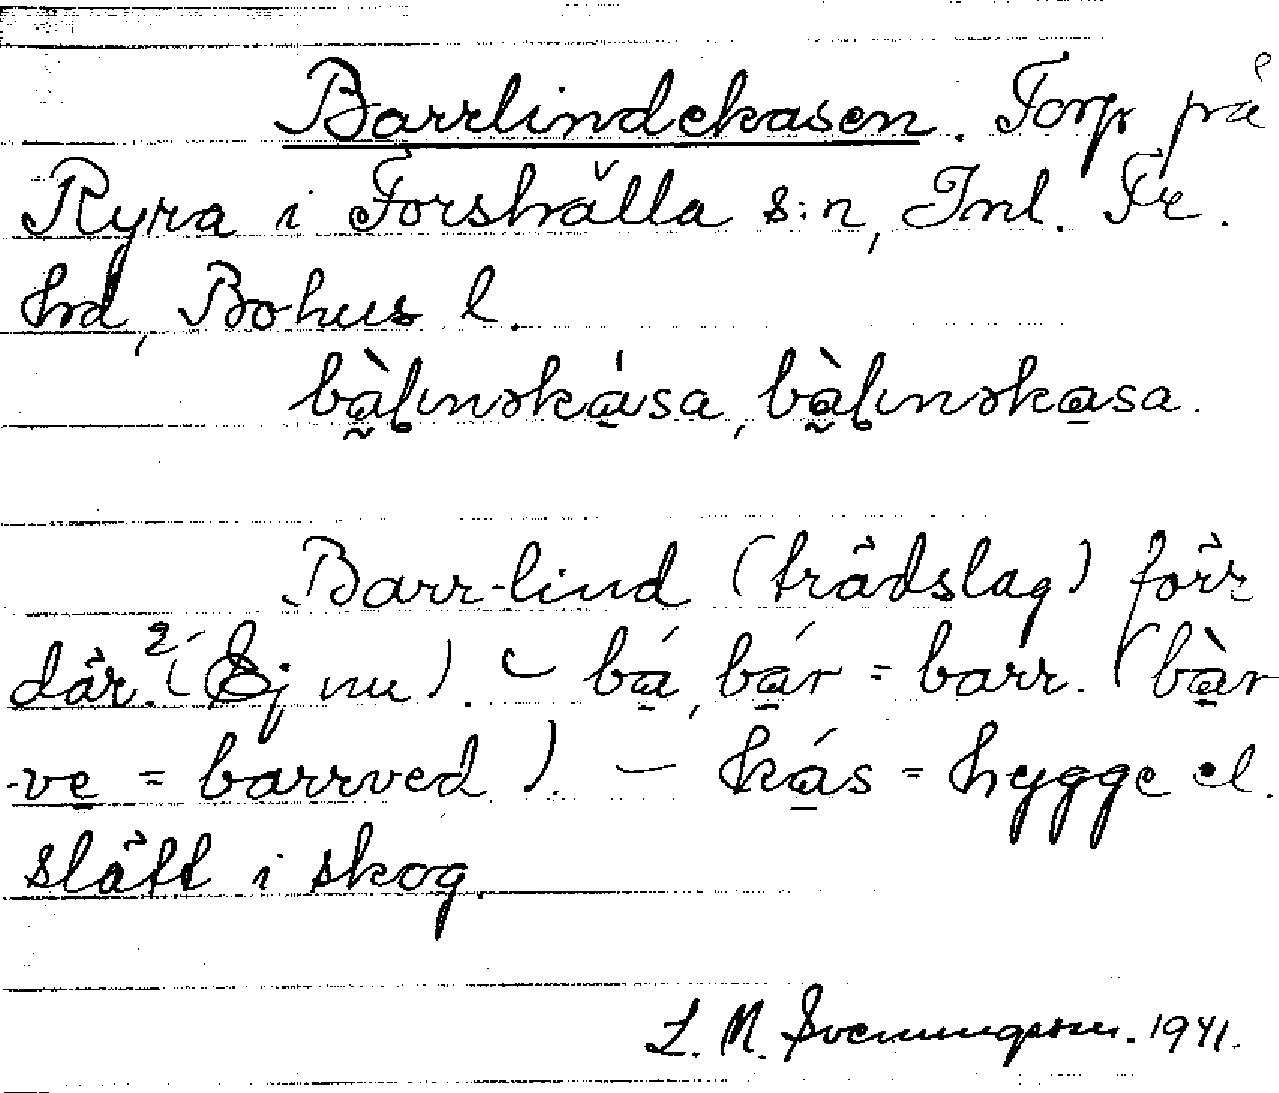 Barrlindekasen. Torp på
Ryra i Forshälla s:n, Inl. Fr.
hd, Bohus l.
bàlınəkása, bàlınəkasa.
Barr-lind (trädslag) förr
där. (Ej nu). – bá, bár = barr. (bàr
-ve = barrved). – kás = hygge el.
slätt i skog.
L. M. Svenungsson. 1941.